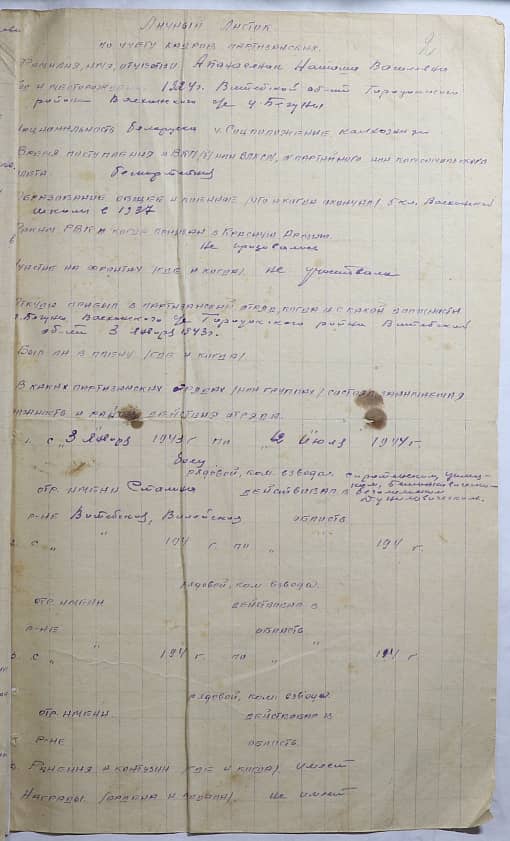 Личный Листок
по учету кадров партизанских.
Фамилия, имя, отчество Апанасенак Наташа Василевна
и месторожд 1924г. Витебской облт Городокского
района Войханского с/с д. Бегуны
циональность беларуска 4. Соцположение колхозница
Время поступления в ВКП/б/ или ВЛКСМ, № партийного или комсомольского
лета. беспартийная
Образование общее и военное /что и когда окончил/ 5 кл. Войханской
школы в 1937
Каким РВК и когда призван в Красную Армию.
Не призвалась
Участие на фронтах /где и когда/. не участвала
Откуда прибыл в партизанский отряд, когда и с какой должности
Войханского с/с Городокского района Витебской
облт 3 января 1943г.
Был ли в плену /где и когда/.
В каких партизанских отрядах /или группах/ состоял, занимаемая
должность и район действия отряда.
1. с "3 января 1943 г по " июля 1944 г.
рядовой, ком. взвода.
отр. имени Сталина действовал в
р-не Витебской, Вилейской область
с " 194 г. по " 194 г.
рядовой, ком. взвода.
отр. имени действовал в
р-не область
с " 194 г по " 194 г
рядовой, ком. взвода
отр. имени. действовал в
р-не область
Ранения и контузии /где и когда/. имеет
Награды /ордена и медали/. не имеет